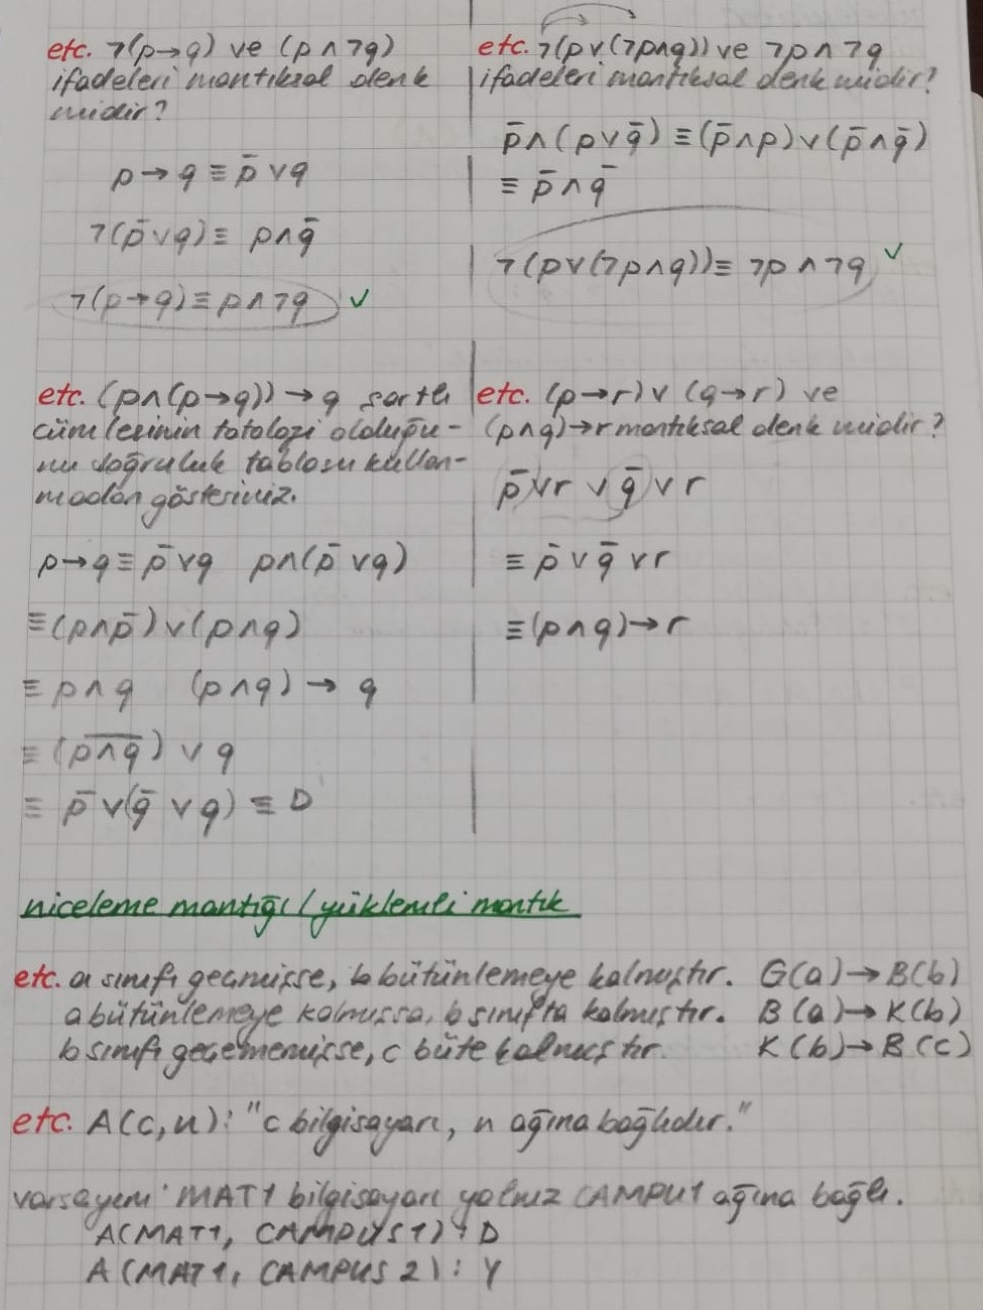 etc. ¬(p→q) ve (p∧¬q)
ifadeleri mantıksal denk
midir?
p→q ≡ p̄∨q
¬(p̄∨q) ≡ p∧q̄
¬(p→q) ≡ p∧¬q ✓
etc. ¬(p∨(¬p∧q)) ve ¬p∧¬q
ifadeleri mantıksal denk midir?
p̄∧(p∨q̄) ≡ (p̄∧p)∨(p̄∧q̄)
≡ p̄∧q̄
¬(p∨(¬p∧q)) ≡ ¬p∧¬q ✓
etc. (p∧(p→q))→q şartlı
cümlesinin totoloji olduğu-
nu doğruluk tablosu kullan-
madan gösteriniz.
p→q ≡ p̄∨q p∧(p̄∨q)
≡(p∧p̄)∨(p∧q)
≡ p∧q (p∧q)→q
≡ (p̅∧̅q̅)∨q
≡ p̄∨(q̄∨q) ≡ D
etc. (p→r)∨(q→r) ve
(p∧q)→r mantıksal denk midir?
p̄∨r∨q̄∨r
≡ p̄∨q̄∨r
≡(p∧q)→r
niceleme mantığı/yüklemli mantık
etc. a sınıfı geçmişse, b bütünlemeye kalmıştır. G(a)→B(b)
a bütünlemeye kalmışsa, b sınıfta kalmıştır. B(a)→K(b)
b sınıfı geçememişse, c büte kalmıştır. K(b)→B(c)
etc. A(c,n): "c bilgisayarı, n ağına bağlıdır."
varsayım: MAT1 bilgisayarı yalnız CAMPU1 ağına bağlı.
A(MAT1, CAMPUS1): D
A(MAT1, CAMPUS2): Y